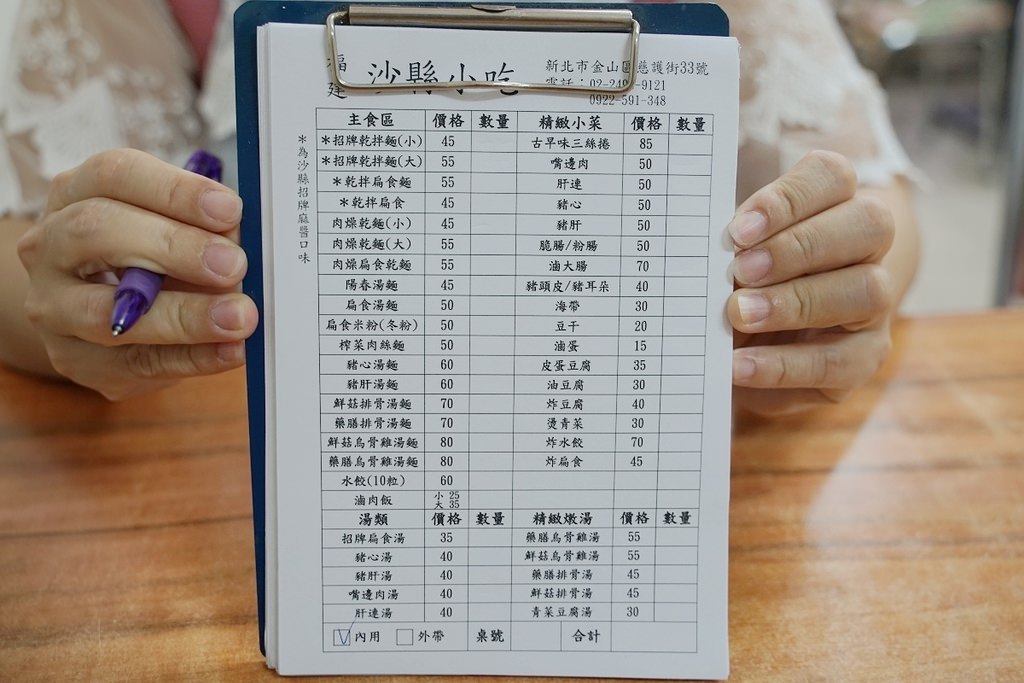 福建 沙縣小吃
新北市金山區慈護街33號
電話：02-249 -9121
0922-591-348
*為沙縣招牌麻醬口味
主食區 價格 數量 精緻小菜 價格 數量
*招牌乾拌麵(小) 45 古早味三絲捲 85
*招牌乾拌麵(大) 55 嘴邊肉 50
*乾拌扁食麵 55 肝連 50
*乾拌扁食 45 豬心 50
肉燥乾麵(小) 45 豬肝 50
肉燥乾麵(大) 55 脆腸/粉腸 50
肉燥扁食乾麵 55 滷大腸 70
陽春湯麵 45 豬頭皮/豬耳朵 40
扁食湯麵 50 海帶 30
扁食米粉(冬粉) 50 豆干 20
榨菜肉絲麵 50 滷蛋 15
豬心湯麵 60 皮蛋豆腐 35
豬肝湯麵 60 油豆腐 30
鮮菇排骨湯麵 70 炸豆腐 40
藥膳排骨湯麵 70 燙青菜 30
鮮菇烏骨雞湯麵 80 炸水餃 70
藥膳烏骨雞湯麵 80 炸扁食 45
水餃(10粒) 60
滷肉飯 小 25 大 35
湯類 價格 數量 精緻燉湯 價格 數量
招牌扁食湯 35 藥膳烏骨雞湯 55
豬心湯 40 鮮菇烏骨雞湯 55
豬肝湯 40 藥膳排骨湯 45
嘴邊肉湯 40 鮮菇排骨湯 45
肝連湯 40 青菜豆腐湯 30
內用 外帶 桌號 合計